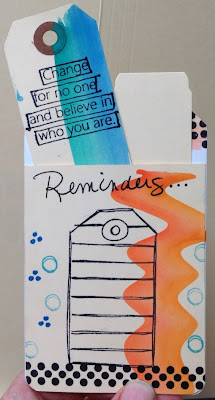 Change
for no one
and believe in
who you are.
Reminders...